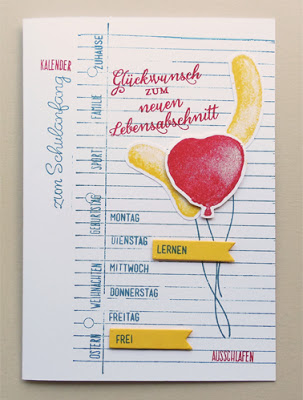 KALENDER
zum Schulanfang
ZUHAUSE
FAMILIE
SPORT
GEBURTSTAG
WEIHNACHTEN
OSTERN
Glückwunsch
ZUM
neuen
Lebensabschnitt
MONTAG
DIENSTAG
LERNEN
MITTWOCH
DONNERSTAG
FREITAG
FREI
AUSSCHLAFEN